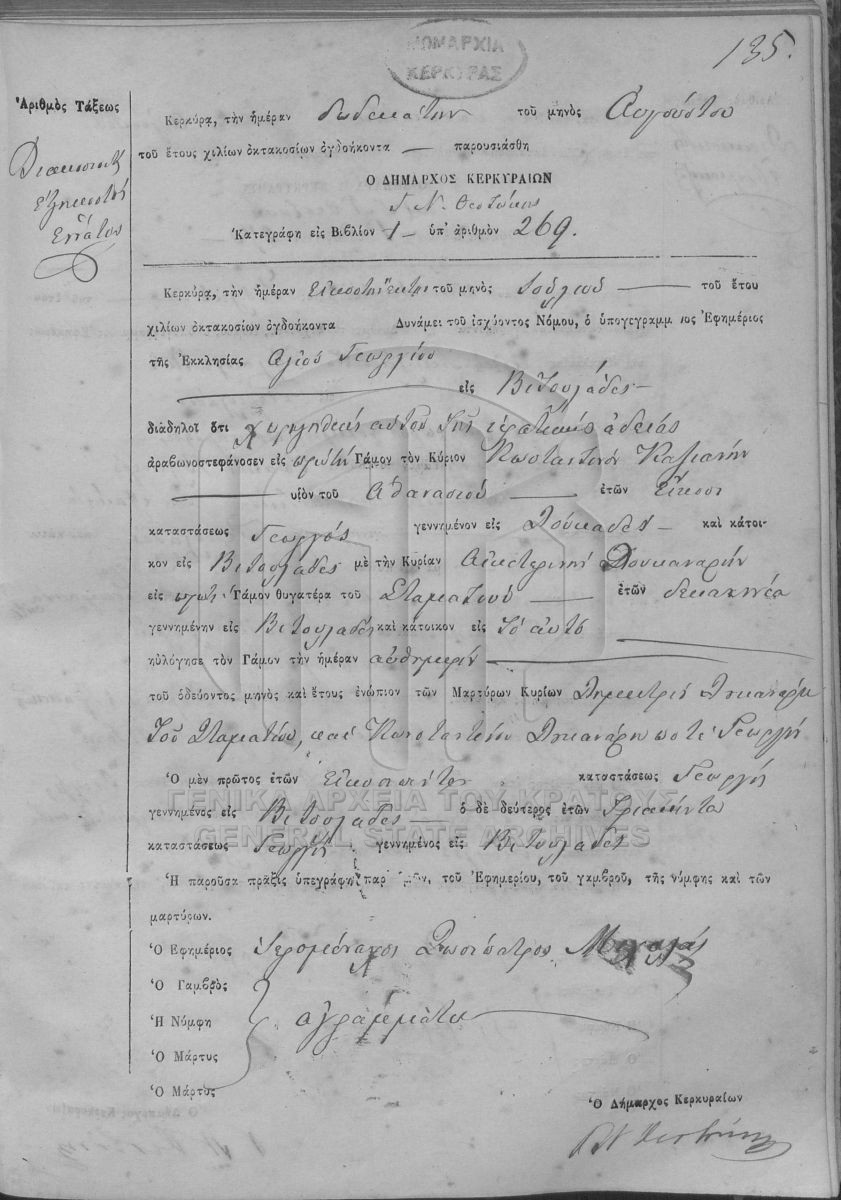 135.
ΝΟΜΑΡΧΙΑ
ΚΕΡΚΥΡΑΣ
Ἀριθμὸς Τάξεως
Διακοσιοστὸς
Ἑξηκοστὸς
Ἔννατος
Κερκύρᾳ, τὴν ἡμέραν δωδεκάτην τοῦ μηνὸς Αὐγούστου
τοῦ ἔτους χιλίων ὀκτακοσίων ὀγδοήκοντα — παρουσιάσθη
Ο ΔΗΜΑΡΧΟΣ ΚΕΡΚΥΡΑΙΩΝ
Γ. Ν. Θεοτόκης
Κατεγράφη εἰς Βιβλίον 1 — ὑπ' ἀριθμὸν 269.
Κερκύρᾳ, τὴν ἡμέραν Εἰκοστὴν ἕκτην τοῦ μηνὸς Ἰουλίου — τοῦ ἔτου
χιλίων ὀκτακοσίων ὀγδοήκοντα Δυνάμει τοῦ ἰσχύοντος Νόμου, ὁ ὑπογεγραμμ νος Ἐφημέριος
τῆς Ἐκκλησίας Αγιος Γεωργίου
εἰς Βιτουλάδες —
διαδηλοῖ ὅτι χορηγηθείσης αὐτοῦ τῆς ἱερατικῆς ἀδείας
ἀραβωνοστεφάνοσεν εἰς πρώτην Γάμον τὸν Κύριον Κωσταντῖνον
— υἱὸν τοῦ Αθανασίου — ἐτῶν Εἴκοσι
καταστάσεως Γεωργὸς γεννημένον εἰς Δουκάδες — καὶ κάτοι-
κον εἰς Βιτουλάδες μὲ τὴν Κυρίαν Αἰκατερίνην Δουκανάρην
εἰς πρώτ. Γάμον θυγατέρα τοῦ Σταματίου — ἐτῶν δεκαεννέα
γεννημένην εἰς Βιτουλάδες καὶ κάτοικον εἰς τὸ αὐτὸ
ηὐλόγησε τὸν Γάμον τὴν ἡμέραν αὐθημερὶν
τοῦ ὁδεύοντος μηνὸς καὶ ἔτους ἐνώπιον τῶν Μαρτύρων Κυρίων Δημήτρις Δουκανάρης
τοῦ Σταματίου, καὶ Κωνσταντῖνου Δουκανάρη ποτὲ Γεωργῆ
Ὁ μὲν πρῶτος ἐτῶν Εἰκοσιπέντε καταστάσεως Γεωργὸς
γεννημένος εἰς Βιτουλάδες — ὁ δὲ δεύτερος ἐτῶν Τριακόντα
καταστάσεως Γεωργὸς γεννημένος εἰς Βιτουλάδες
Ἡ παροῦσα πρᾶξις ὑπεγράφη παρ' , τοῦ Ἐφημερίου, τοῦ γαμβροῦ, τῆς νύμφης καὶ τῶν
μαρτύρων.
Ὁ Ἐφημέριος Ἱερομόναχος Σωσίπατρος
Ὁ Γαμβρὸς
Ἡ Νύμφη ἀγράμματοι
Ὁ Μάρτυς
Ὁ Μάρτυς
Ὁ Δήμαρχος Κερκυραίων
Γ Ν Θεοτόκης
ΓΕΝΙΚΑ ΑΡΧΕΙΑ ΤΟΥ ΚΡΑΤΟΥΣ
GENERAL STATE ARCHIVES